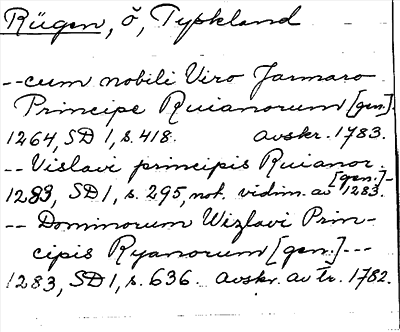 Rügen, ö, Tyskland
--cum nobili Viro Jarmaro
Principe Ruianorum [gen].
1264, SD 1, s. 418. avskr. 1783.
-- Vislavi principis Ruianor.
[gen.]-
1283, SD 1, s. 295, not. vidim. av 1283.
-- Dominorum Wizlavi Prin-
cipis Ryanorum [gen.]---
1283, SD 1, s. 636. avskr. av tr. 1782.